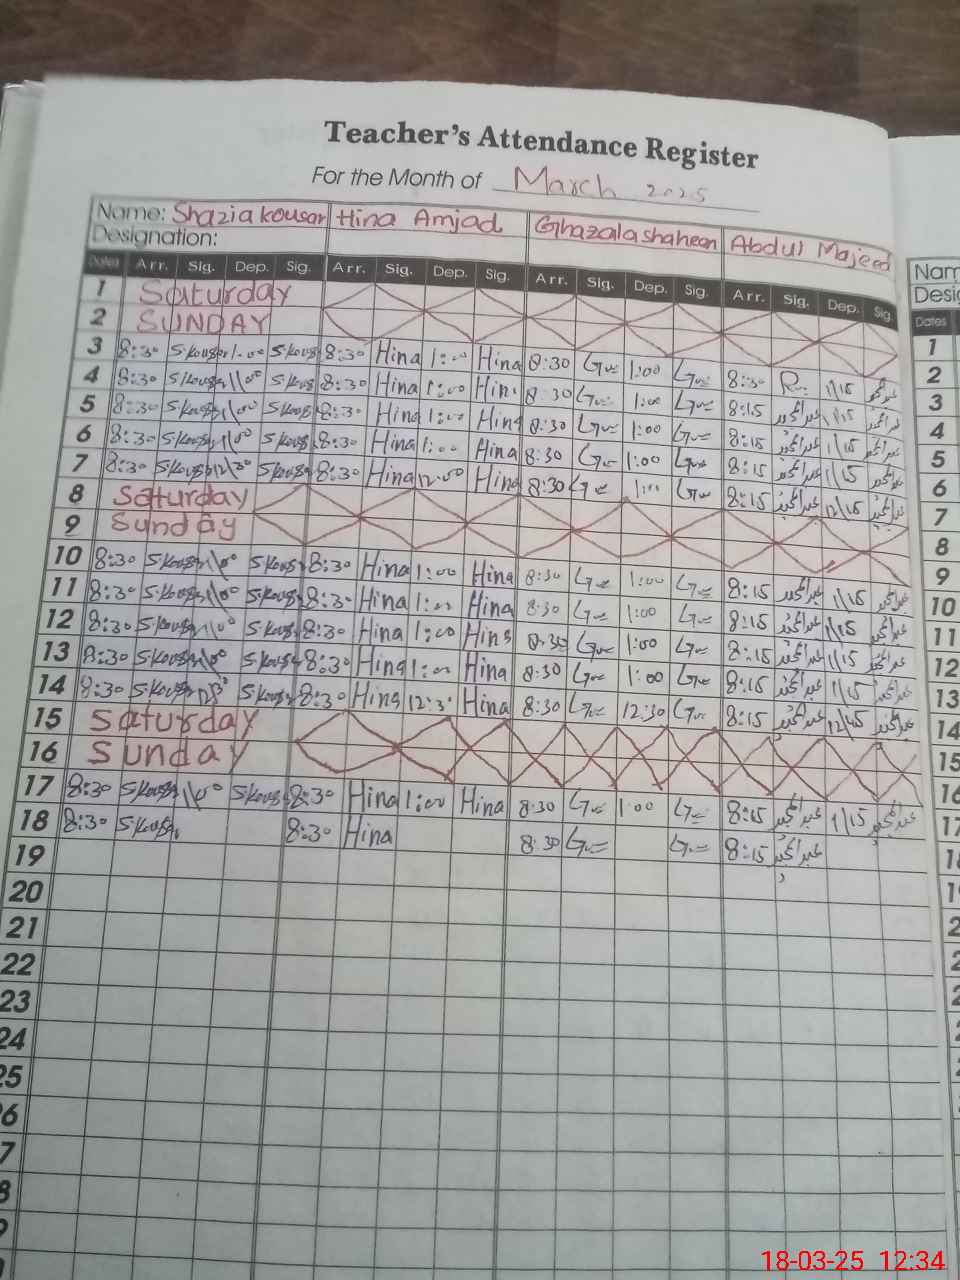 Teacher's Attendance Register
For the Month of March 2025
Name: Shazia kousar Hina Amjad Ghazala shaheen Abdul Majeed
Designation:
Dates Arr. Sig. Dep. Sig. Arr. Sig. Dep. Sig. Arr. Sig. Dep. Sig. Arr. Sig. Dep. Sig.
1 Saturday
2 SUNDAY
3 8:30 S.kousar 1:00 S.kousar 8:30 Hina 1:00 Hina 8:30 1:00 8:30 1/15
4 8:30 S.kousar 1/00 S.kousar 8:30 Hina 1:00 Hina 8:30 1:00 8:15 عبدالمجید 1/15 عبدالمجید
5 8:30 S.kousar 1/00 S.kousar 8:30 Hina 1:00 Hina 8:30 1:00 8:15 عبدالمجید 1/15 عبدالمجید
6 8:30 S.kousar 1/00 S.kousar 8:30 Hina 1:00 Hina 8:30 1:00 8:15 عبدالمجید 1/15 عبدالمجید
7 8:30 S.kousar 12/30 S.kousar 8:30 Hina 12:00 Hina 8:30 1:00 8:15 عبدالمجید 12/15 عبدالمجید
8 Saturday
9 Sunday
10 8:30 S.kousar 1/00 S.kousar 8:30 Hina 1:00 Hina 8:30 1:00 8:15 عبدالمجید 1/15 عبدالمجید
11 8:30 S.kousar 1/00 S.kousar 8:30 Hina 1:00 Hina 8:30 1:00 8:15 عبدالمجید 1/15 عبدالمجید
12 8:30 S.kousar 1/00 S.kousar 8:30 Hina 1:00 Hina 8:30 1:00 8:15 عبدالمجید 1/15 عبدالمجید
13 8:30 S.kousar 1/00 S.kousar 8:30 Hina 1:00 Hina 8:30 1:00 8:15 عبدالمجید 1/15 عبدالمجید
14 8:30 S.kousar 12/30 S.kousar 8:30 Hina 12:30 Hina 8:30 12:30 8:15 عبدالمجید 12/45 عبدالمجید
15 Saturday
16 Sunday
17 8:30 S.kousar 1/00 S.kousar 8:30 Hina 1:00 Hina 8:30 1:00 8:15 عبدالمجید 1/15 عبدالمجید
18 8:30 S.kousar 8:30 Hina 8:30 8:15 عبدالمجید
19
20
21
22
23
24
25
6
7
8
9
Nam
Desig
Dates
1
2
3
4
5
6
7
8
9
10
11
12
13
14
15
16
17
18-03-25 12:34